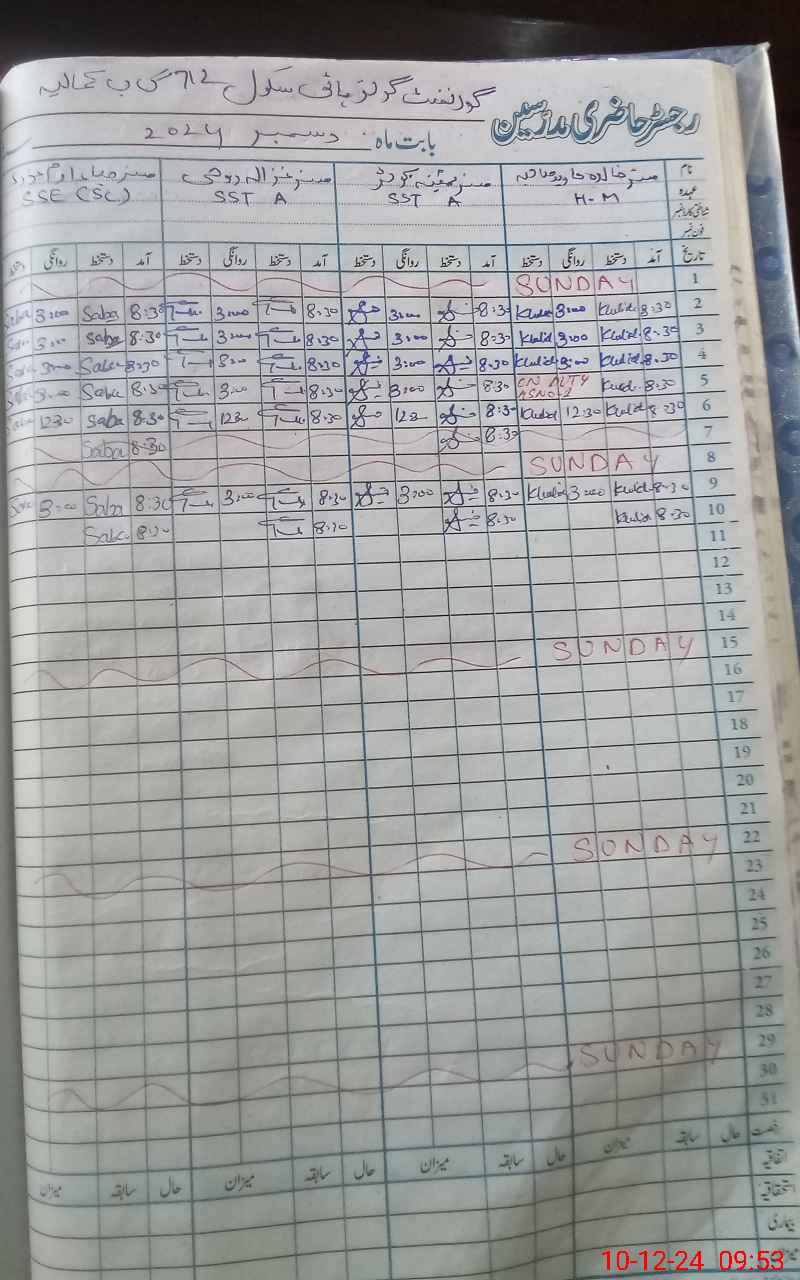 گورنمنٹ گرلز ہائی سکول 712 گ ب کمالیہ
رجسٹر حاضری مدرسین
بابت ماہ دسمبر 2024
نام مسز خالدہ جاوید صاحبہ مسز
عہدہ H-M SST A SST A SSE (Sc)
شناختی کارڈ نمبر
فون نمبر
تاریخ آمد دستخط روانگی دستخط آمد دستخط روانگی دستخط آمد دستخط روانگی دستخط آمد دستخط روانگی دستخط
1 SUNDAY
2 8:30 Khalid 3:00 Khalid 8:30 3:00 8:30 3:00 8:30 Saba 3:00 Saba
3 8:30 Khalid 3:00 Khalid 8:30 3:00 8:30 3:00 8:30 Saba 3:00
4 8:30 Khalid 3:00 Khalid 8:30 3:00 8:30 3:00 8:30 Saba 3:00
5 8:30 Khalid ON DUTY 8:30 3:00 8:30 3:00 8:30 Saba 3:00
6 8:30 Khalid 12:30 Khalid 8:30 12:30 8:30 12:30 8:30 Saba 12:30
7 8:30 8:30 Saba
8 SUNDAY
9 8:30 Khalid 3:00 Khalid 8:30 3:00 8:30 3:00 8:30 Saba 3:00
10 8:30 Khalid 8:30 8:30 8:30 Saba
11
12
13
14
15 SUNDAY
16
17
18
19
20
21
22 SUNDAY
23
24
25
26
27
28
29 SUNDAY
30
31
رخصت حال سابقہ میزان حال سابقہ میزان حال سابقہ میزان حال سابقہ میزان
اتفاقیہ
استحقاقیہ
بیماری
میزان
10-12-24 09:53